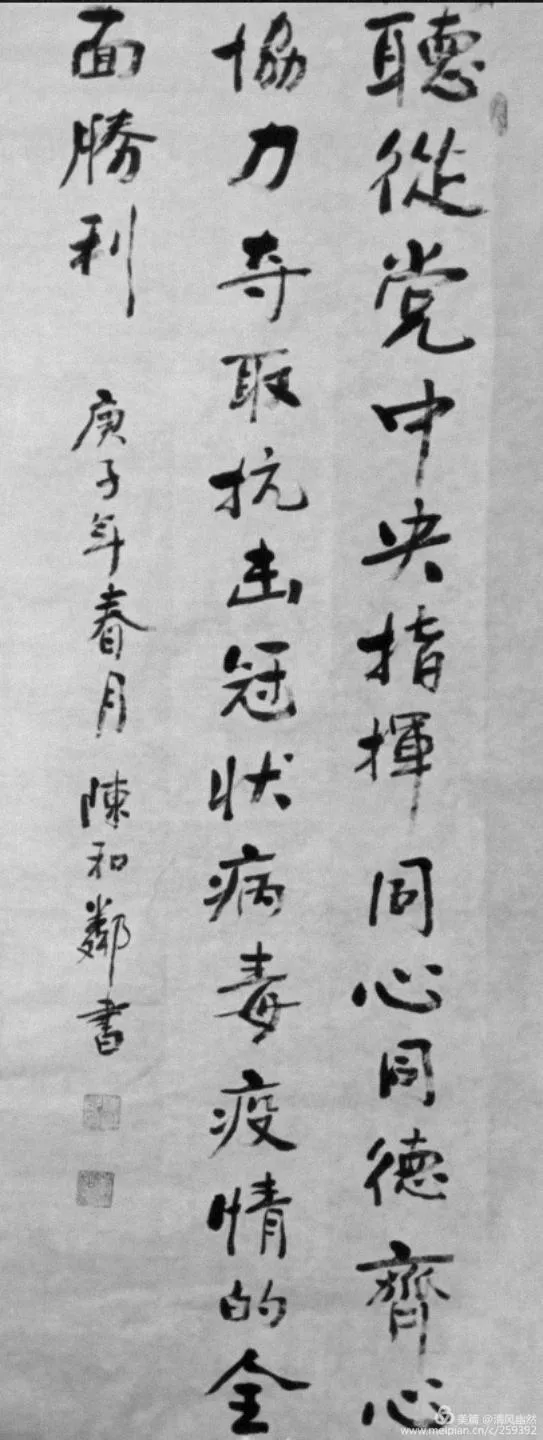 聽從党中央指揮同心同德齊心
協力夺取抗击冠状病毒疫情的全
面勝利
庚子年春月陳和鄰書
美篇 @清风幽然
www.meipian.cn/c/259392